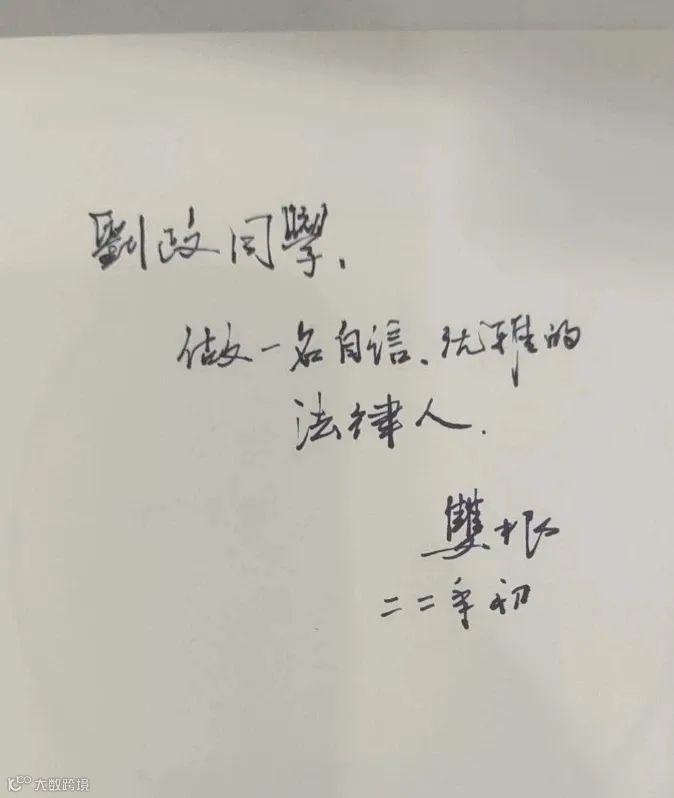 劉政同學、
做一名自信、优雅的
法律人.
雙根
二二年初
大数跨境